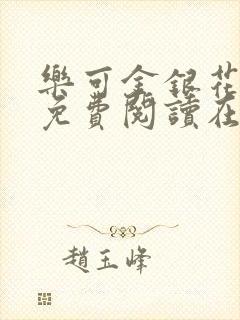 樂可金銀花
免費閱讀在
趙玉峰